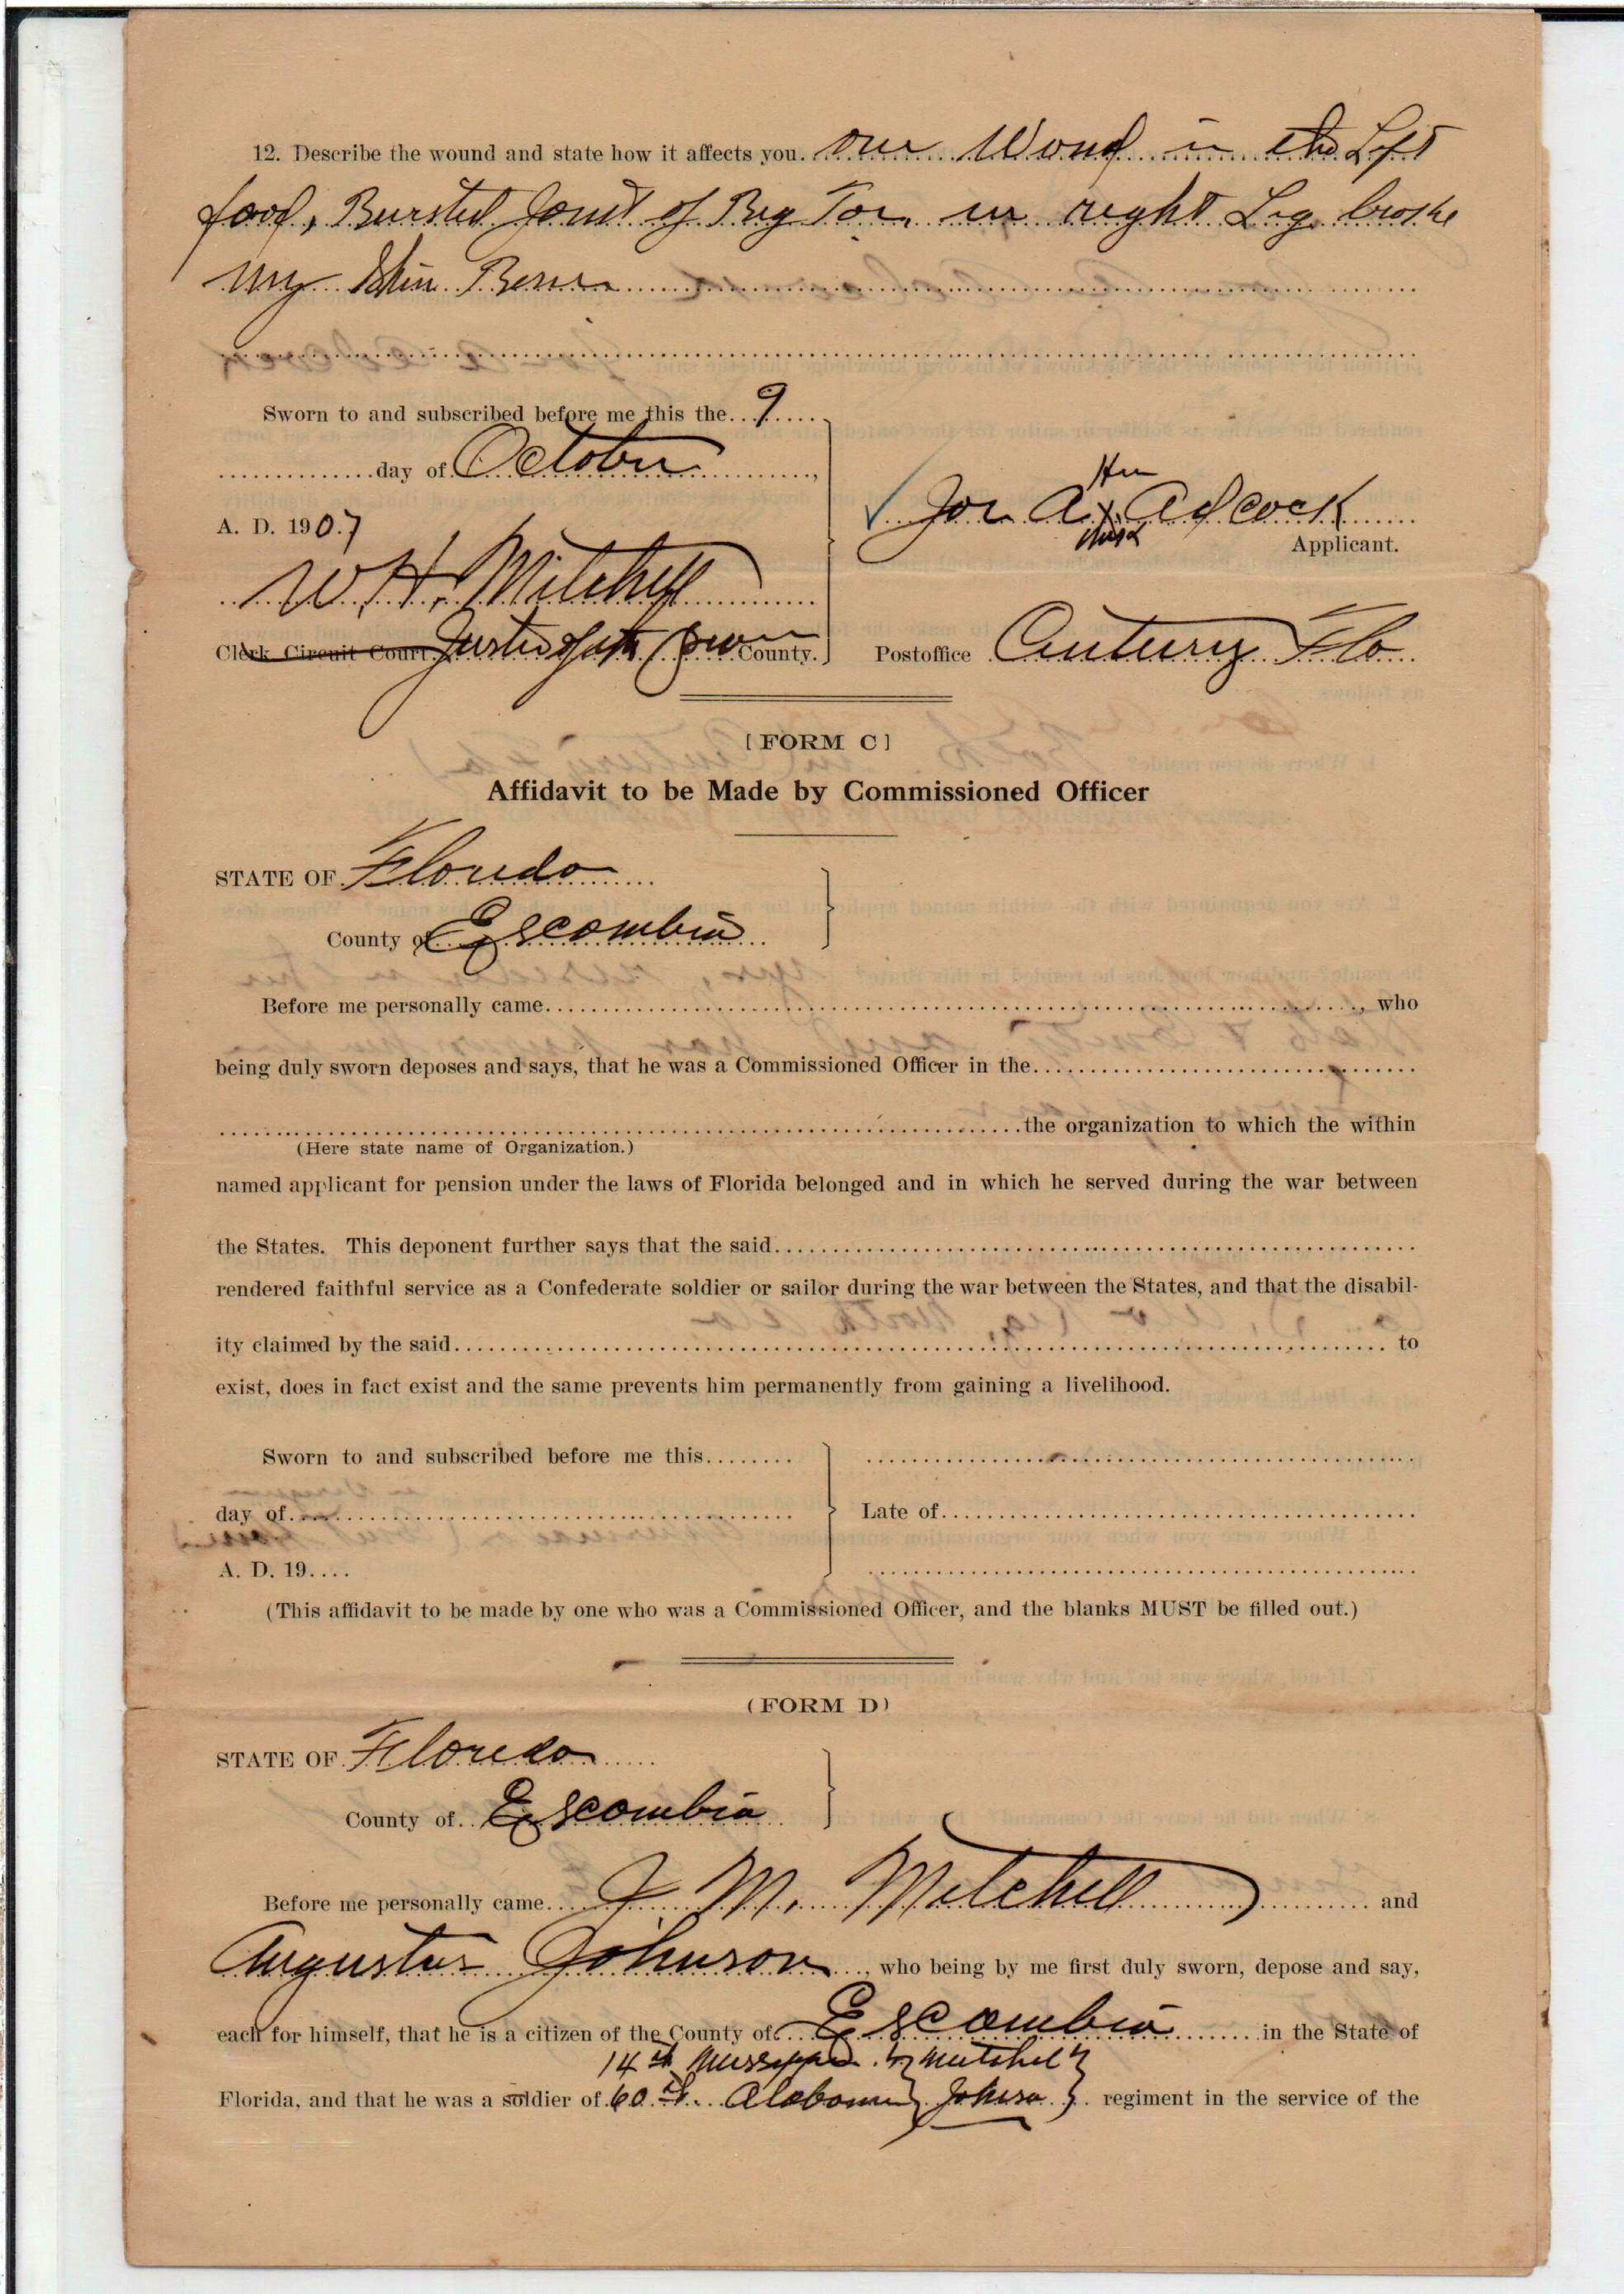 12. Describe the wound and state how it affects you. One Wound in the Left
foot, Bursted Joint of Big Toe, in right Leg broke
my Shin Bone
Sworn to and subscribed before me this the 9
day of October
A. D. 1907
His
Joe A. X Adcock
Mark
Applicant.
W. H. Mitchell
Clerk Circuit Court Justice of the Peace County.
Postoffice Century Fla
[FORM C]
Affidavit to be Made by Commissioned Officer
STATE OF Florida
County of Escambia
Before me personally came, who
being duly sworn deposes and says, that he was a Commissioned Officer in the
the organization to which the within
(Here state name of Organization.)
named applicant for pension under the laws of Florida belonged and in which he served during the war between
the States. This deponent further says that the said
rendered faithful service as a Confederate soldier or sailor during the war between the States, and that the disabil-
ity claimed by the said to
exist, does in fact exist and the same prevents him permanently from gaining a livelihood.
Sworn to and subscribed before me this
day of
Late of
A. D. 19
(This affidavit to be made by one who was a Commissioned Officer, and the blanks MUST be filled out.)
(FORM D)
STATE OF Florida
County of Escambia
Before me personally came J. M. Mitchell and
Augustus Johnson, who being by me first duly sworn, depose and say,
each for himself, that he is a citizen of the County of Escambia in the State of
14th Mississippi } Mitchel }
Florida, and that he was a soldier of 60th Alabama } Johnson } regiment in the service of the